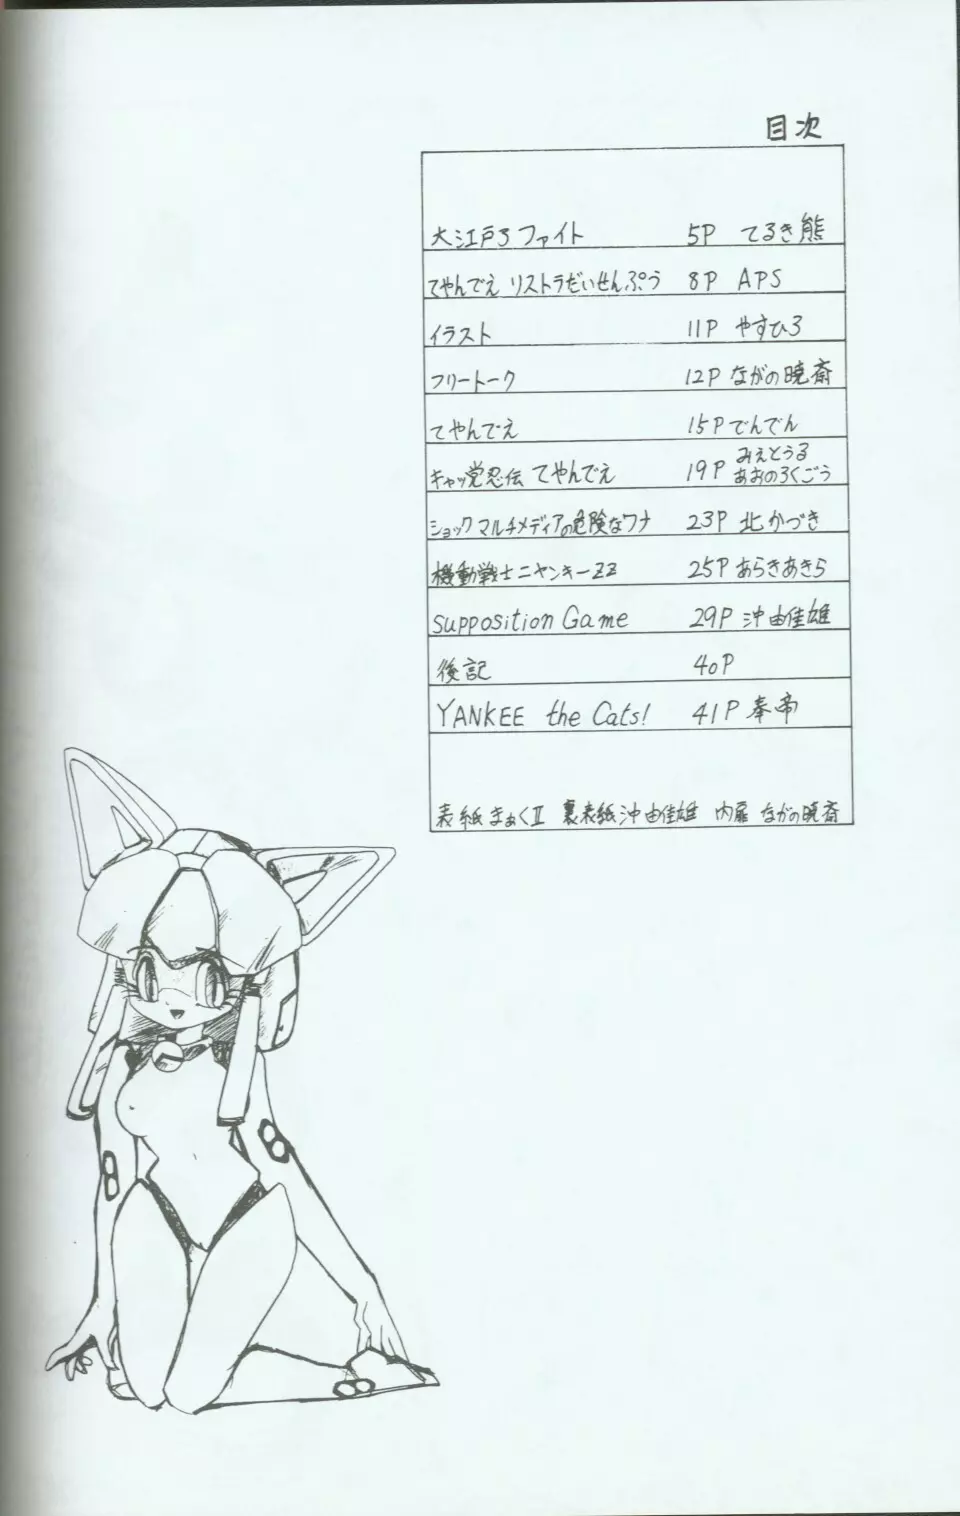 目次
大江戸3ファイト 5P てるき熊
てやんでえ リストラだいせんぷう 8P APS
イラスト 11P やすひろ
フリートーク 12P ながの暁斎
てやんでえ 15P でんでん
キャッ党忍伝 てやんでえ 19P みえとうる
あおのろくごう
ショック マルチメディアの危険なワナ 23P 北かづき
機動戦士ニャンキーZZ 25P あらきあきら
Supposition Game 29P 沖由佳雄
後記 40P
YANKEE the Cats! 41P 奉帝
表紙 まぁくII 裏表紙 沖由佳雄 内扉 ながの暁斎